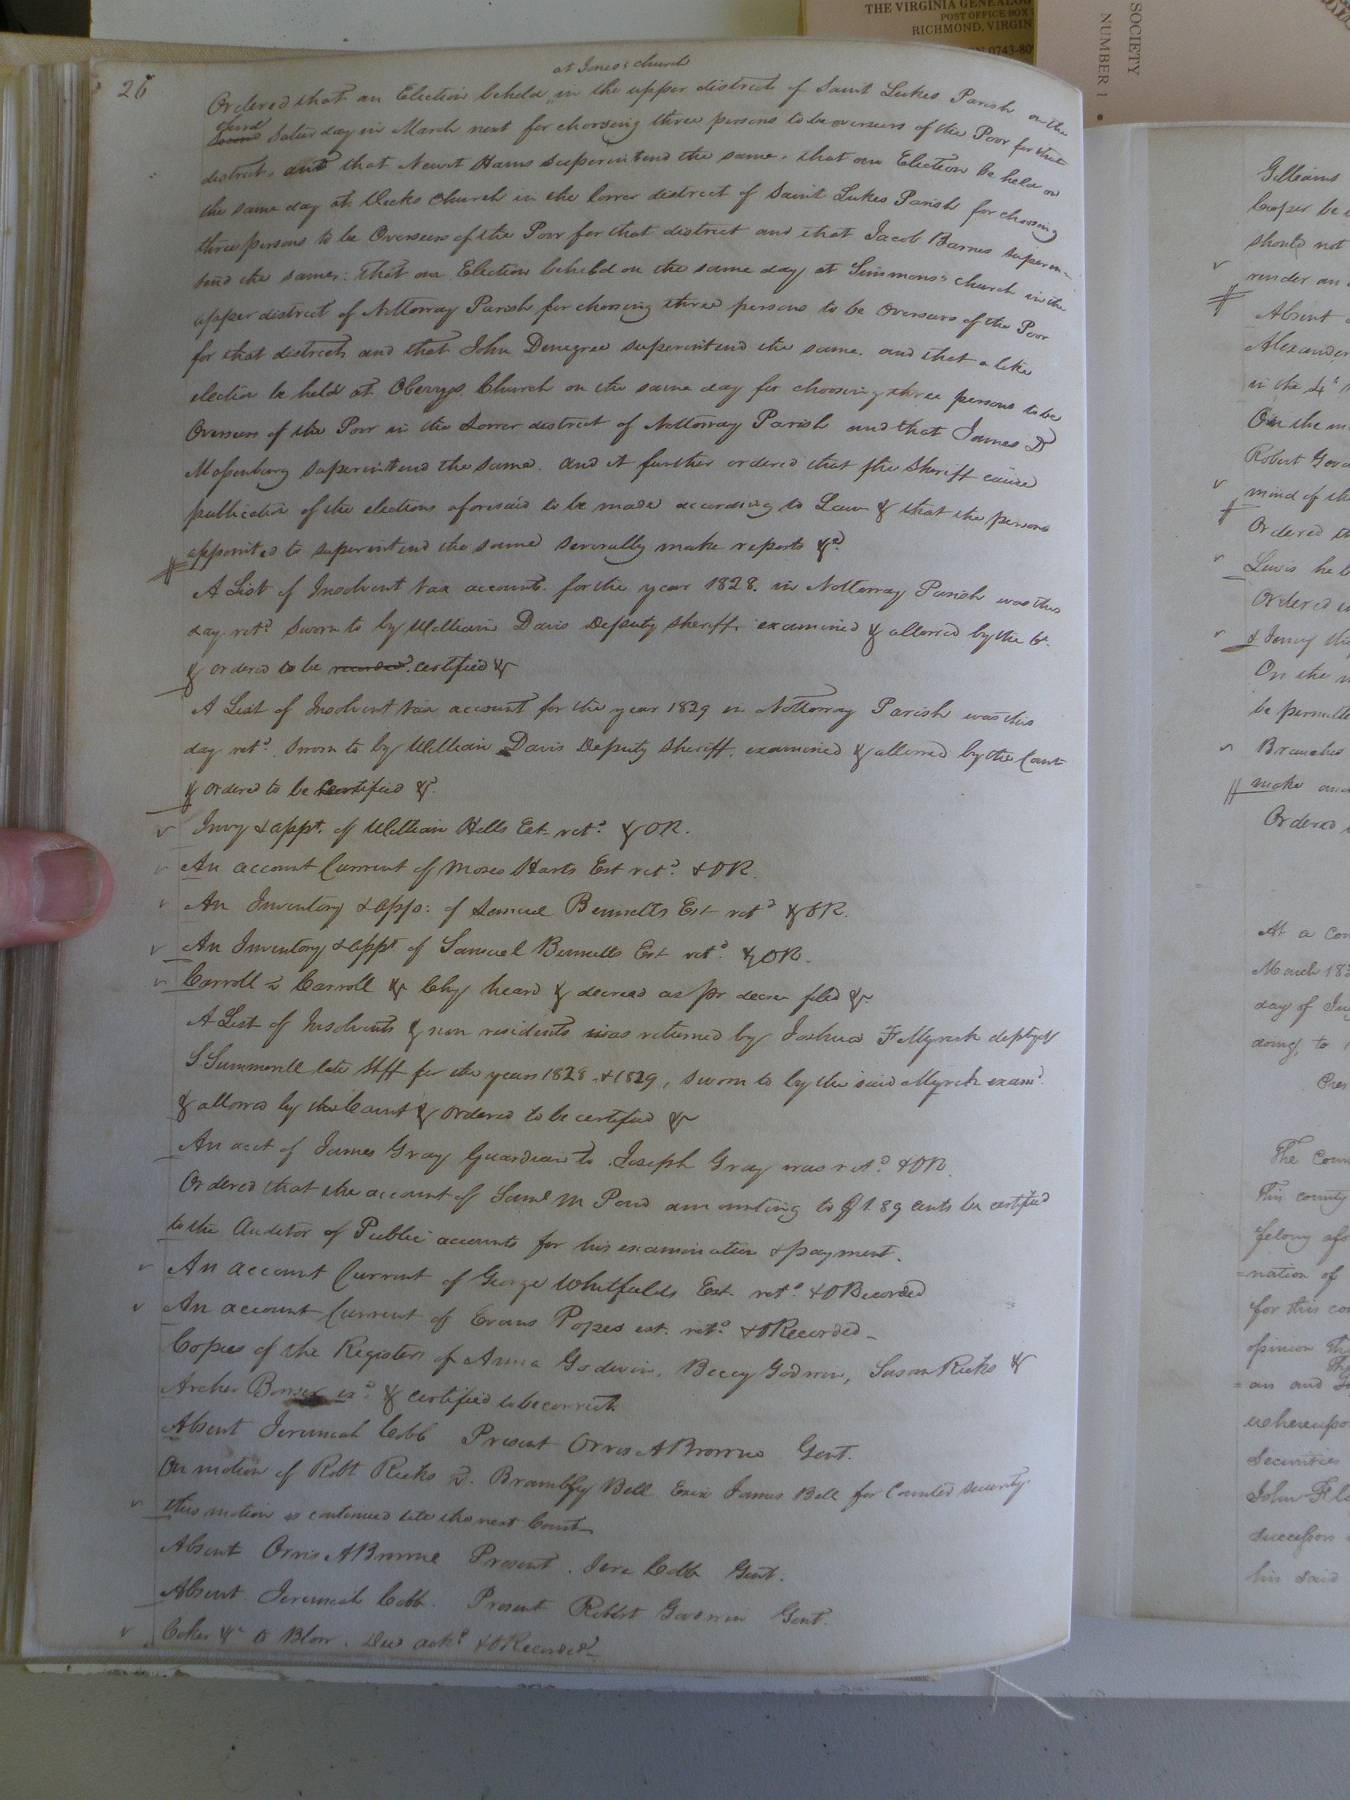 THE VIRGINIA GENEALOG
POST OFFICE BOX
RICHMOND, VIRGIN
N 0743-80
SOCIETY
NUMBER 1
26
at Jones's church
Ordered that an Election be held in the upper district of Saint Lukes Parish on the
Saturday in March next for choosing three persons to be overseers of the Poor for that
district, and that Newit Harris superintend the same, that an Election be held on
the same day at Vicks Church in the lower district of Saint Lukes Parish for choosing
three persons to be Overseers of the Poor for that district and that Jacob Barnes superin-
tend the same: That an Election be held on the same day at Simmons's church in the
upper district of Nottoway Parish for choosing three persons to be overseers of the Poor
for that district, and that John Denegree superintend the same. and that a like
election be held at Oberrys Church on the same day for choosing three persons to be
Overseers of the Poor in the Lower district of Nottoway Parish and that James D
Massenburg superintend the same. and it further ordered that the Sheriff cause
publication of the elections aforesaid to be made according to Law & that the persons
appointed to superintend the same severally make reports &c.
A List of Insolvent tax accounts for the year 1828. in Nottoway Parish was this
day retd. Sworn to by William Davis Deputy Sheriff, examined & allowed by the Ct.
& ordered to be recorded certified &c
A List of Insolvent tax account for the year 1829 in Nottoway Parish was this
day retd. Sworn to by William Davis Deputy Sheriff, examined & allowed by the Court
& ordered to be certified &c.
Invy & appt. of William Hills Est. retd. & OR.
An account Current of Moses Harts Est retd. & OR.
An Inventory & apps: of Samuel Bennetts Est retd & OR.
An Inventory & appt. of Samuel Bennetts Est retd. & OR.
Carroll vs Carroll &c Chy heard & decreed as pr decree filed &c
A List of Insolvents & non residents was returned by Joshua F Myrick depty of
S Summerell late Shff for the years 1828 & 1829, sworn to by the said Myrick examd.
& allowed by the Court & ordered to be certified &c
An acct of James Gray Guardian to Joseph Gray was retd. & OR.
Ordered that the account of Saml M Pond amounting to $ 1.89 cents be certified
to the Auditor of Public accounts for his examination & payment.
An account Current of George Whitfields Est. retd. & O Recorded
An account Current of Evans Popes est. retd. & O Recorded
Copies of the Registers of Anna Godwin, Beccy Godwin, Susan Ricks &
Archer exd. & certified to be correct
Absent Jeremiah Cobb Present Orris A Browne Gent.
On motion of Robt Ricks vs. Bell Exix James Bell for Counter security
this motion is continued till the next Court
Absent Orris A Browne Present. Jere Cobb Gent.
Absent Jeremiah Cobb. Present Robert Goodwin Gent.
Coker &c to Blow. Deed ackd & O Recorded
Gilliams
should not
render an
Absent
Alexander
in the 4
On the m
mind of th
Ordered th
Lewis he
Ordered
& Jenny th
On the m
be permitte
Branches
make and
Ordered
At a con
March 183
day of
doing, to
Pres
The Coun
This county
felony afo
nation of
for this co
opinion th
an and
whereupon
Securities
John Fl
successors
his said